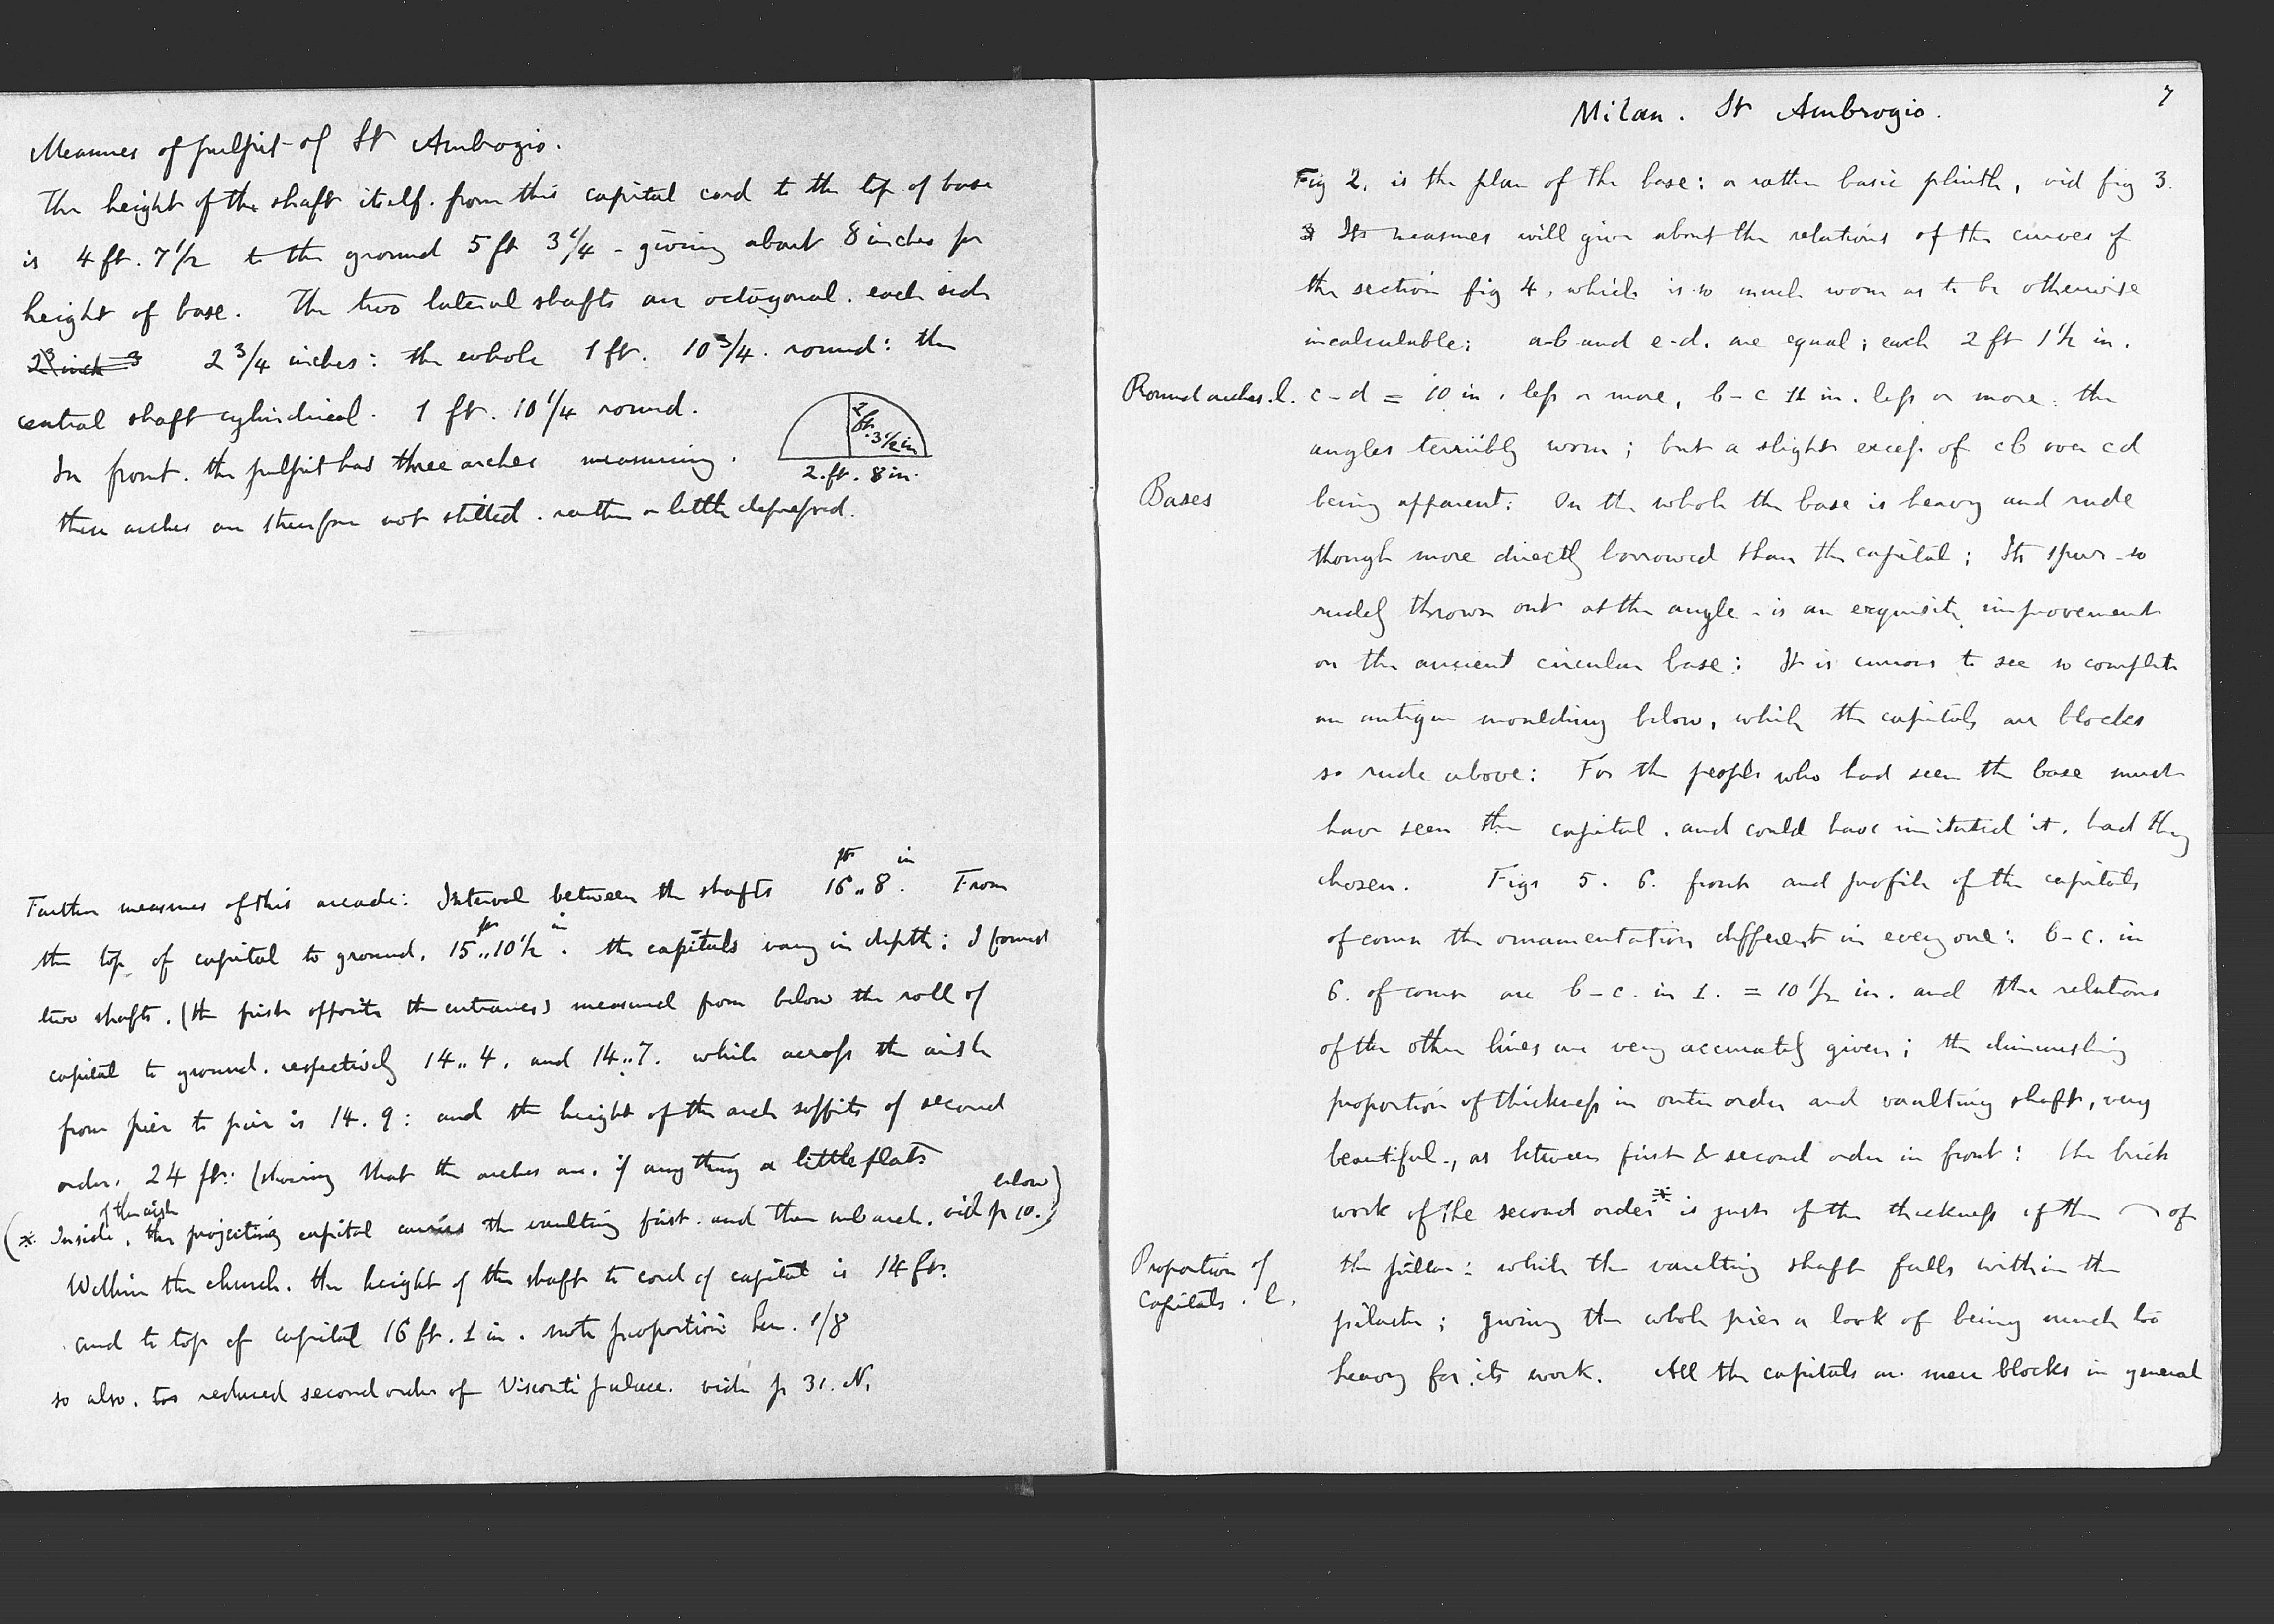 Measures of pulpit of St Ambrogio.
The height of the shaft itself. from this capital cord to the top of base
is 4 ft. 7 1/2 to the ground 5 ft 3 1/4 - giving about 8 inches for
height of base. The two lateral shafts are octagonal. each side
2 3/4 inches: the whole 1 ft. 10 3/4. round: the
central shaft cylindrical. 1 ft. 10 1/4 round.
In front. the pulpit has three arches measuring.
2 ft. 3 1/2 in
2. ft. 8 in.
these arches are therefore not stilted. rather a little depressed.
Farther measures of this arcade: Interval between the shafts 16 ft .. 8 in. From
the top of capital to ground. 15 ft .. 10 1/2 in. the capitals vary in depth: I found
two shafts. (the first opposite the entrance) measured from below the roll of
capital to ground. respectively 14..4. and 14..7. while across the aisle
from pier to pier is 14. 9: and the height of the arch soffits of second
order. 24 ft: (showing that the arches are. if any thing a little flat
(* Inside of the aisle, the projecting capital carries the vaulting first. and then sub arch. vid p 10. below)
Within the church. the height of the shaft to cord of capital is 14 ft.
and to top of capital 16 ft. 1 in. note proportion here. 1/8
so also. reduced second order of Visconti palace. vide p 31. N.
7
Milan. St Ambrogio.
Fig 2. is the plan of the base: or rather basic plinth, vid fig 3.
Its measures will give about the relations of the curves of
the section fig 4, which is so much worn as to be otherwise
incalculable: a-b and e-d. are equal; each 2 ft 1 1/2 in.
Round arches. l. c-d = 10 in. less or more, b-c 11 in. less or more: the
angles terribly worn; but a slight excess of cb over cd
Bases
being apparent: On the whole the base is heavy and rude
though more directly borrowed than the capital; Its spur - so
rudely thrown out at the angle - is an exquisite improvement
on the ancient circular base: It is curious to see so complete
an antique moulding below, while the capitals are blocks
so rude above: For the people who had seen the base must
have seen the capital. and could have imitated it, had they
chosen. Figs 5. 6. front and profile of the capitals
of course the ornamentation different in every one: b-c. in
6. of course are b-c. in 1. = 10 1/2 in. and the relations
of the other lines are very accurately given; the diminishing
proportion of thickness in outer order and vaulting shaft, very
beautiful-, as between first & second order in front: the brick
work of the second order * is just of the thickness of the of
Proportion of
Capitals. l.
the pillar: while the vaulting shaft falls within the
pilaster; giving the whole pier a look of being much too
heavy for its work. All the capitals are mere blocks in general